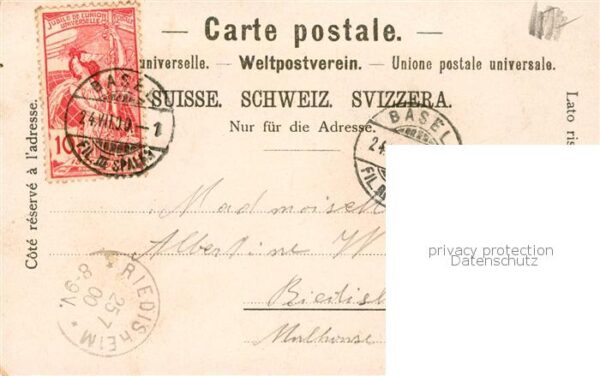 JUBILÉ DE L'UNION
UNIVERSELLE POSTALE
10
Carte postale.
universelle. – Weltpostverein. – Unione postale universale.
SUISSE. SCHWEIZ. SVIZZERA.
Nur für die Adresse.
Côté réservé à l'adresse.
Lato ris
BASEL
24.VII.00.–1
FIL. ST. SPALEN
BASEL
24.
FIL.
Mademoisel
Albertine W
Riedish
Mulhouse
RIEDISHEIM
25 7
00
8-9V.
privacy protection
Datenschutz